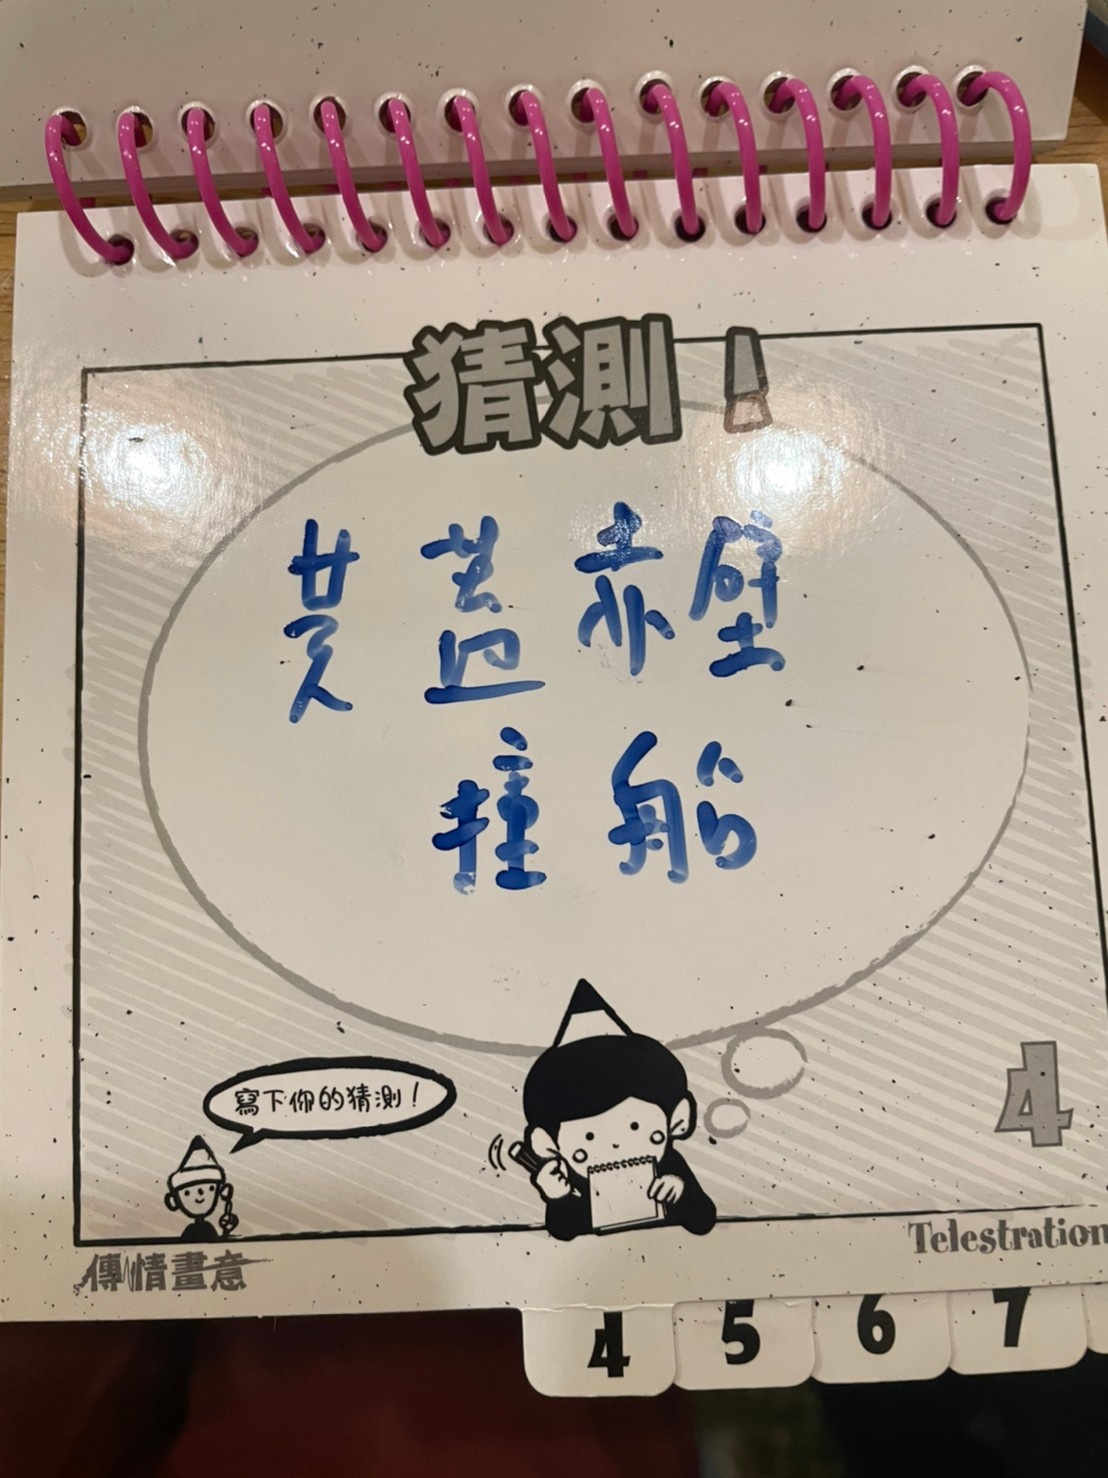 猜測！
黃蓋赤壁
撞船
寫下你的猜測！
4
傳情畫意
Telestration
4 5 6 7